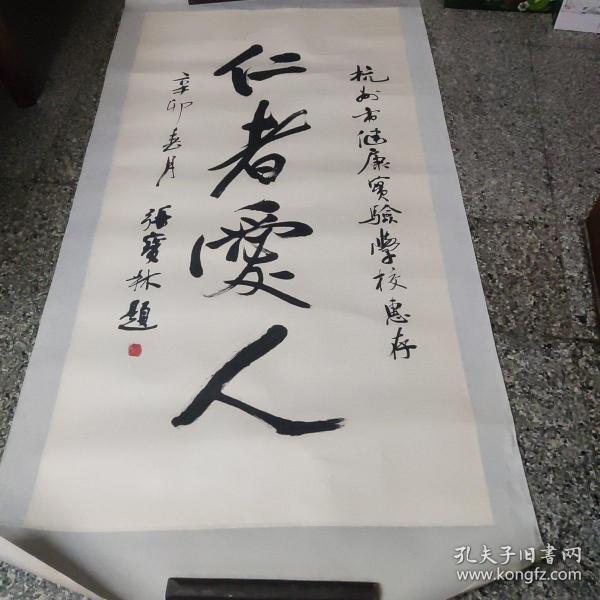 杭州市健康實驗學校惠存
仁者愛人
辛卯春月
張寶林題
孔夫子旧书网
www.kongfz.com